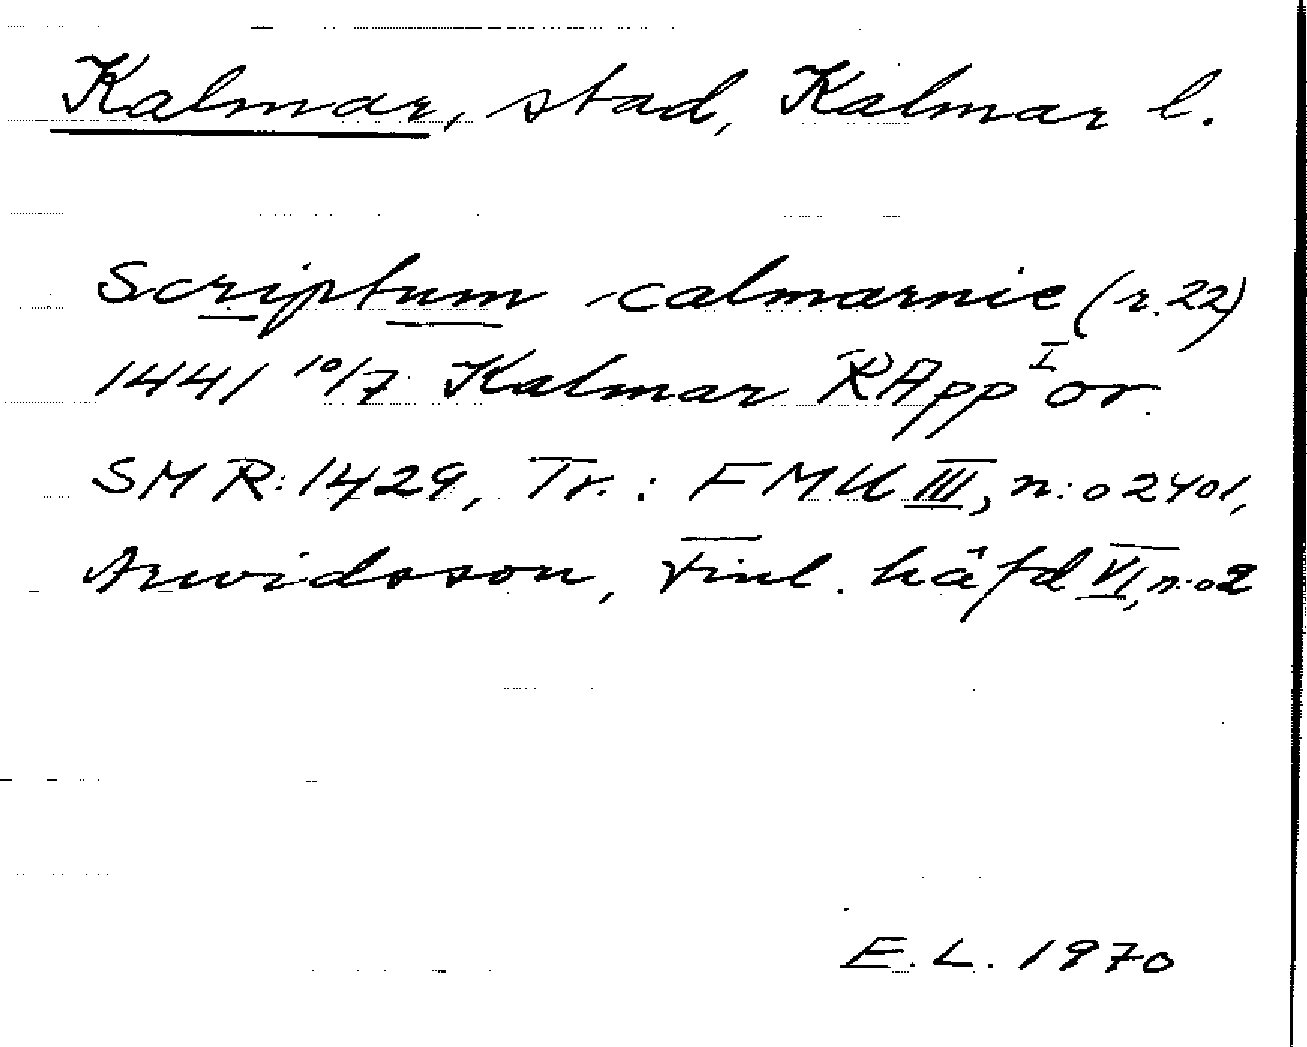 Kalmar, stad, Kalmar l.
Scriptum calmarnie (r. 22)
1441 10/7 Kalmar RApp I or
SMR: 1429, Tr. : FMU III, n:o 2401,
Arwidsson, Finl. häfd VI, n:o 2
E. L. 1970